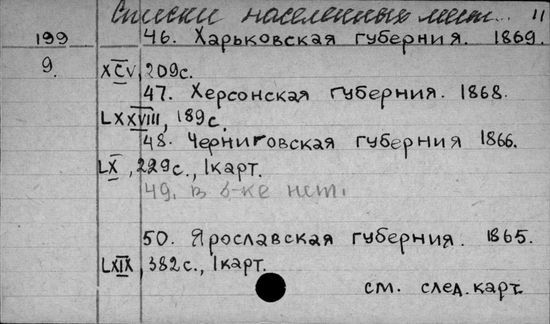 Списки населенных мест... 11
199 46. Харьковская губерния. 1869.
9. XCV, 209с.
47. Херсонская губерния. 1868.
LXXVIII, 189с.
48. Черниговская губерния 1866.
LX, 229с., 1карт.
49. в б-ке нет.
50. Ярославская губерния. 1865.
LXIX, 382с., 1карт.
см. след. карт.